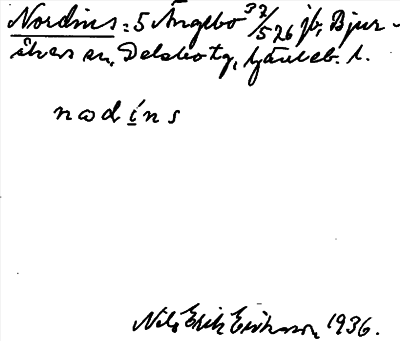 Nordins: 5 Ängebo 32/526 jb, Bjur-
åkers sn, Delsbo tg, Gävleb. l.
nodíns
Nils Erik Eriksson 1936.